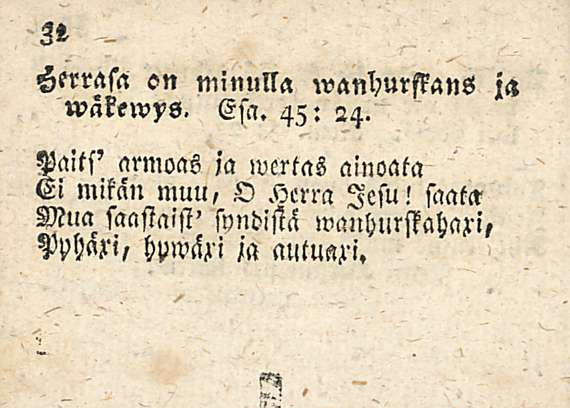 32
Herrasa on minulla wanhurskans ja
wäkewys. Esa. 45: 24.
Paits' armoas ja wertas ainoata
Ei mikän muu, O Herra Jesu! saata
Mua saastaist' syndistä wanhurskahaxi,
Pyhäxi, hywäxi ja autuaxi.